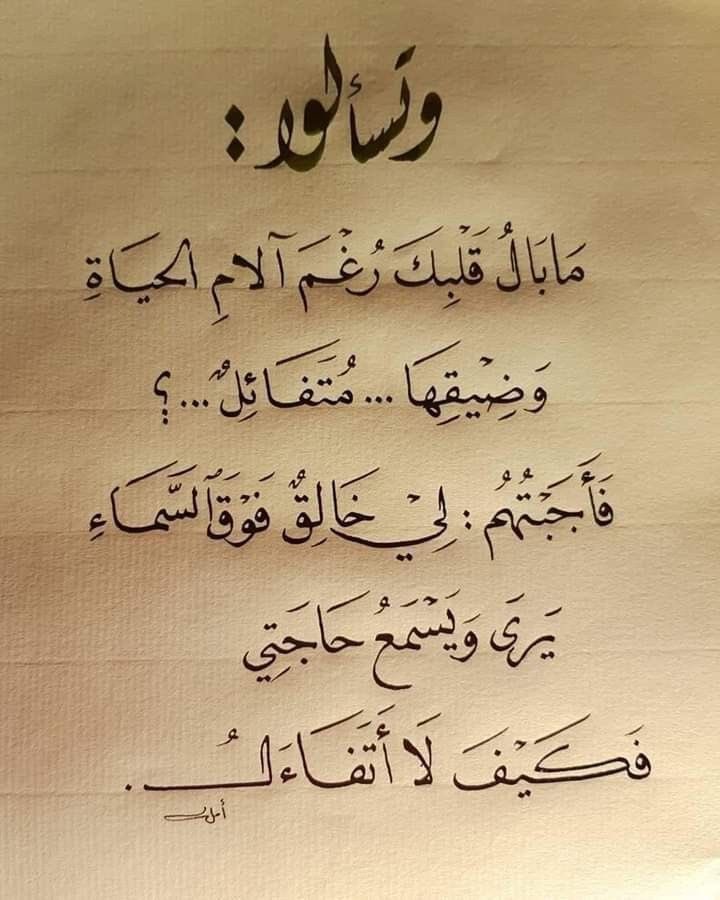 وتسألوا :
مَا بَالُ قَلْبِكَ رُغْمَ آلامِ الحيَاةِ
وَضِيْقِهَا ... مُتَفَائِلٌ ... ؟
فَأَجَبْتُهُم : لِيْ خَالِقٌ فَوْقَ ٱلسَّمَاءِ
يَرَى وَيَسْمَعُ حَاجَتِي
فَكَيْفَ لَا أَتَفَاءَلُ .
أمل